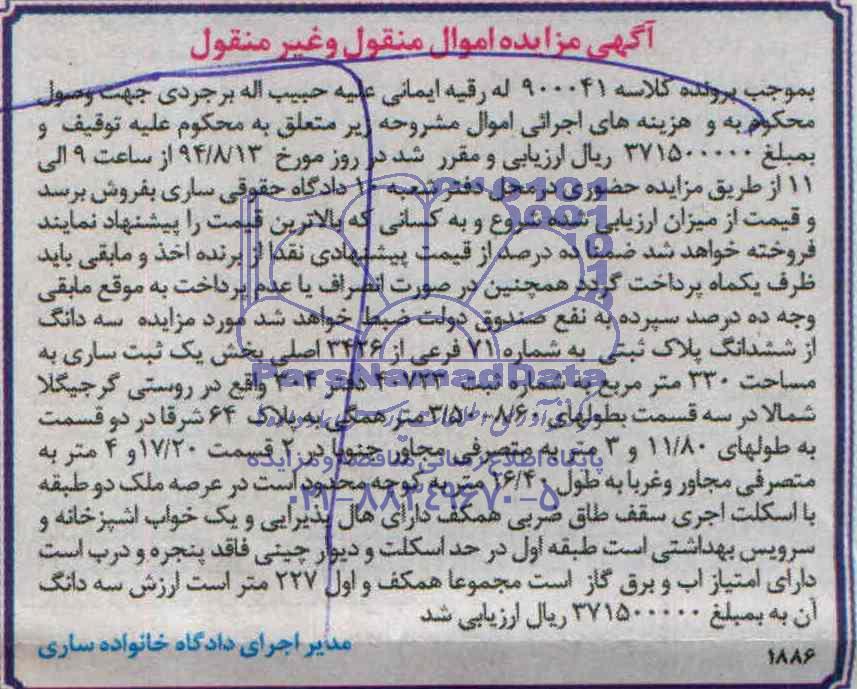 آگهی مزایده اموال منقول وغیر منقول
بموجب پرونده کلاسه ۹۰۰۰۴۱ له رقیه ایمانی علیه حبیب اله برجردی جهت وصول
محکوم به و هزینه های اجرائی اموال مشروحه زیر متعلق به محکوم علیه توقیف و
بمبلغ ۳۷۱۵۰۰۰۰۰ ریال ارزیابی و مقرر شد در روز مورخ ۹۴/۸/۱۳ از ساعت ۹ الی
۱۱ از طریق مزایده حضوری درمحل دفتر شعبه ۱۰ دادگاه حقوقی ساری بفروش برسد
و قیمت از میزان ارزیابی شده شروع و به کسانی که بالاترین قیمت را پیشنهاد نمایند
فروخته خواهد شد ضمنا ده درصد از قیمت پیشنهادی نقدا از برنده اخذ و مابقی باید
ظرف یکماه پرداخت گردد همچنین در صورت انصراف یا عدم پرداخت به موقع مابقی
وجه ده درصد سپرده به نفع صندوق دولت ضبط خواهد شد مورد مزایده سه دانگ
از ششدانگ پلاک ثبتی به شماره ۷۱ فرعی از ۳۴۲۶ اصلی بخش یک ثبت ساری به
مساحت ۳۳۰ متر مربع به شماره ثبت ۴۰۷۲۳ دفتر ۳۰۴ واقع در روستی گرجیگلا
شمالا در سه قسمت بطولهای ۸/۶۰ متر همگی به پلاک ۶۴ شرقا در دو قسمت
به طولهای ۱۱/۸۰ و ۳ متر به متصرفی مجاور جنوبا در ۲ قسمت ۱۷/۲۰ و ۴ متر به
متصرفی مجاور وغربا به طول ۲۶/۴۰ متر به کوچه محدود است در عرصه ملک دو طبقه
با اسکلت اجری سقف طاق ضربی همکف دارای هال پذیرایی و یک خواب اشپزخانه و
سرویس بهداشتی است طبقه اول در حد اسکلت و دیوار چینی فاقد پنجره و درب است
دارای امتیاز اب و برق گاز است مجموعا همکف و اول ۲۲۷ متر است ارزش سه دانگ
آن به بمبلغ ۳۷۱۵۰۰۰۰۰ ریال ارزیابی شد
مدیر اجرای دادگاه خانواده ساری
۱۸۸۶
ParsNamadData
پایگاه اطلاع رسانی مناقصه و مزایده
۰۲۱-۸۸۳۴۹۶۷۰-۵